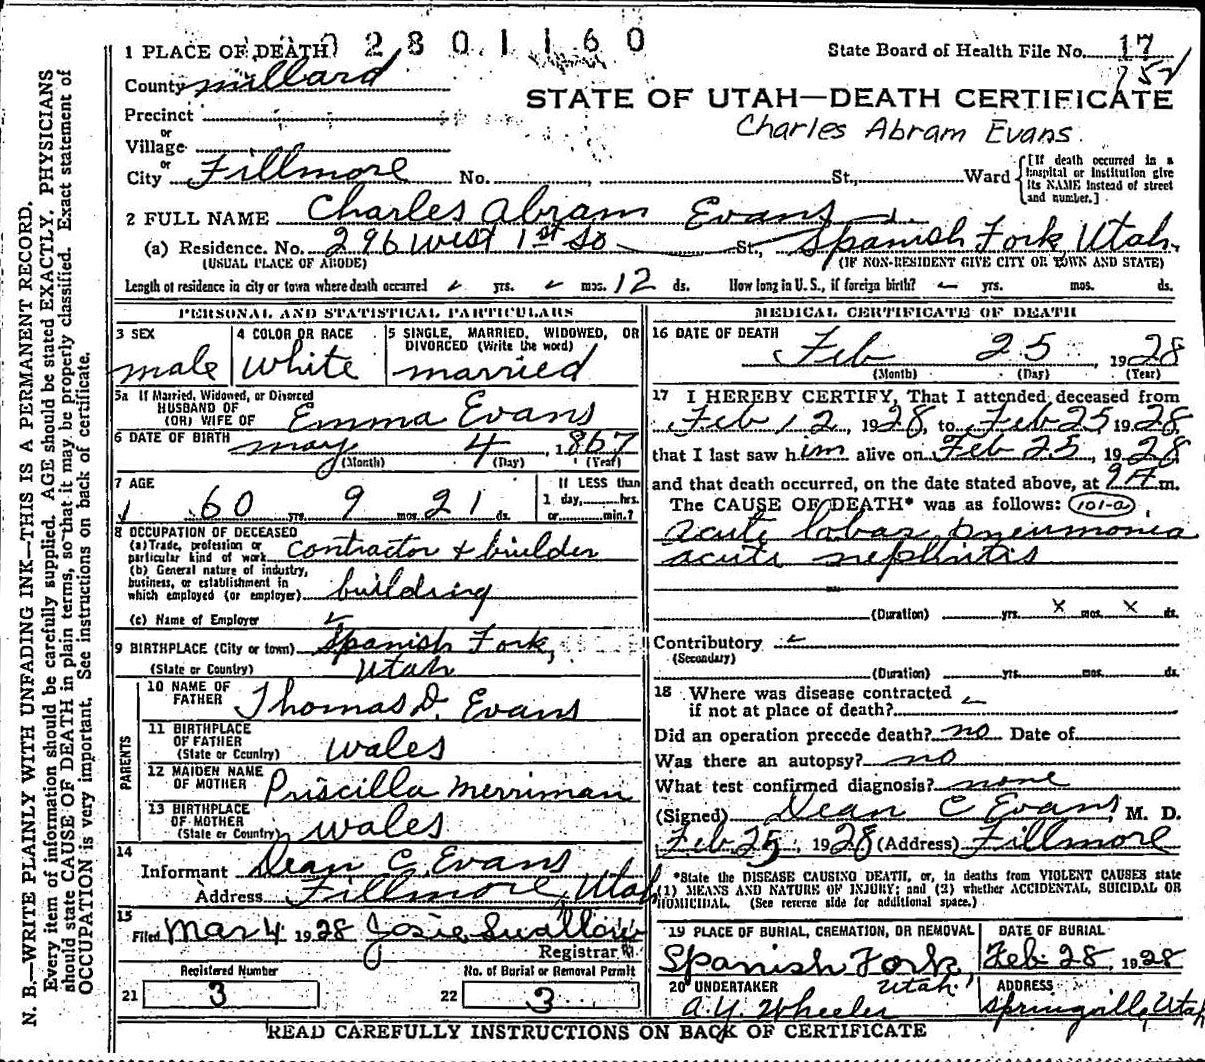 1 PLACE OF DEATH
0 2 8 0 1 1 6 0
State Board of Health File No. 17
152
County Millard
STATE OF UTAH—DEATH CERTIFICATE
Precinct
or
Village
Charles Abram Evans.
or
City Fillmore No. , St., Ward
[If death occurred in a hospital or institution give its NAME instead of street and number.]
2 FULL NAME Charles Abram Evans
(a) Residence. No. 296 West 1st So St., Spanish Fork Utah.
(USUAL PLACE OF ABODE) (IF NON-RESIDENT GIVE CITY OR TOWN AND STATE)
Length of residence in city or town where death occurred yrs. mos. 12 ds. How long in U. S., if foreign birth? yrs. mos. ds.
PERSONAL AND STATISTICAL PARTICULARS
3 SEX
male
4 COLOR OR RACE
White
5 SINGLE, MARRIED, WIDOWED, OR DIVORCED (Write the word)
married
5a If Married, Widowed, or Divorced
HUSBAND OF
(OR) WIFE OF Emma Evans
6 DATE OF BIRTH may 4, 1867
(Month) (Day) (Year)
7 AGE
60 yrs. 9 mos. 21 ds.
If LESS than
1 day, hrs.
or min.?
8 OCCUPATION OF DECEASED
(a) Trade, profession or
particular kind of work contractor + builder
(b) General nature of industry,
business, or establishment in
which employed (or employer) building
(c) Name of Employer
9 BIRTHPLACE (City or town) Spanish Fork,
(State or Country) Utah
PARENTS
10 NAME OF
FATHER Thomas D. Evans
11 BIRTHPLACE
OF FATHER
(State or Country) wales
12 MAIDEN NAME
OF MOTHER Priscilla Merriman
13 BIRTHPLACE
OF MOTHER
(State or Country) wales
14
Informant Dean C. Evans
Address Fillmore, Utah
15
Filed Mar 4 1928 Josie Swallow
Registrar
Registered Number
21 3
No. of Burial or Removal Permit
22 3
MEDICAL CERTIFICATE OF DEATH
16 DATE OF DEATH
Feb 25, 1928
(Month) (Day) (Year)
17 I HEREBY CERTIFY, That I attended deceased from
Feb 12, 1928, to Feb 25, 1928,
that I last saw him alive on Feb 25, 1928
and that death occurred, on the date stated above, at 9 A m.
The CAUSE OF DEATH* was as follows: 101-a
acute lobar pneumonia
acute nephritis
(Duration) yrs. x mos. x ds.
Contributory
(Secondary)
(Duration) yrs. mos. ds.
18 Where was disease contracted
if not at place of death?
Did an operation precede death? no Date of
Was there an autopsy? no
What test confirmed diagnosis? none
(Signed) Dean C Evans, M. D.
Feb 25, 1928 (Address) Fillmore
*State the DISEASE CAUSING DEATH, or, in deaths from VIOLENT CAUSES state
(1) MEANS AND NATURE OF INJURY; and (2) whether ACCIDENTAL, SUICIDAL OR
HOMICIDAL. (See reverse side for additional space.)
19 PLACE OF BURIAL, CREMATION, OR REMOVAL
Spanish Fork,
Utah.
DATE OF BURIAL
Feb. 28, 1928
20 UNDERTAKER
A.Y. Wheeler
ADDRESS
Springville, Utah
READ CAREFULLY INSTRUCTIONS ON BACK OF CERTIFICATE
N. B.—WRITE PLAINLY WITH UNFADING INK—THIS IS A PERMANENT RECORD.
Every item of information should be carefully supplied. AGE should be stated EXACTLY. PHYSICIANS
should state CAUSE OF DEATH in plain terms, so that it may be properly classified. Exact statement of
OCCUPATION is very important. See instructions on back of certificate.